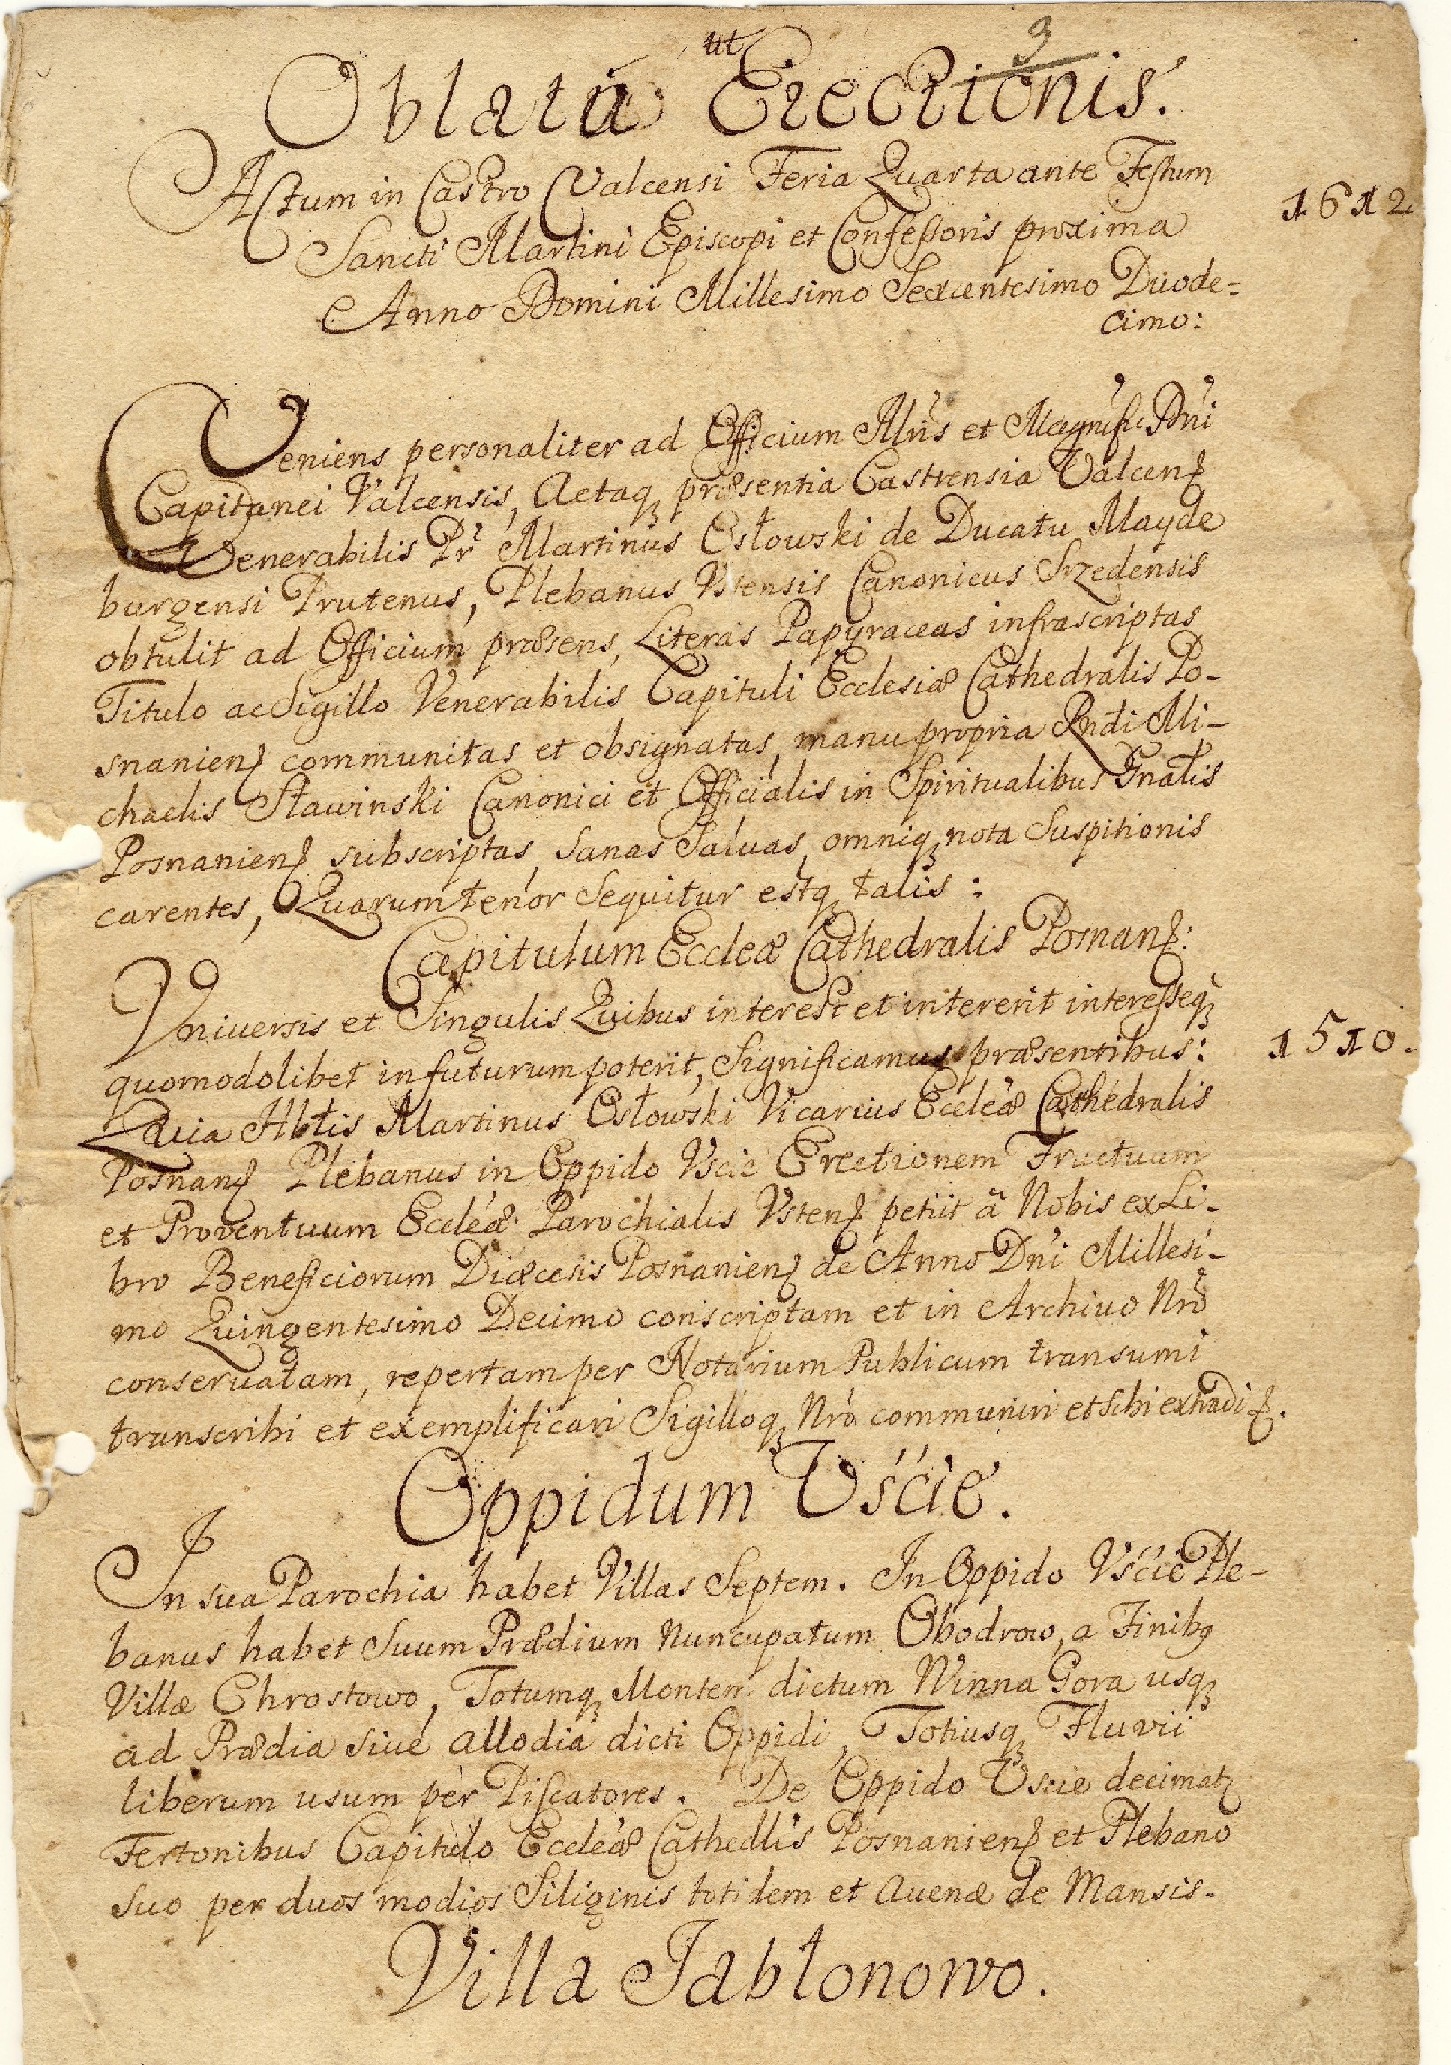 9
ut
Oblatú Erectionis.
Actum in Castro Valcensi Feria Quarta ante Festum
1612
Sancti Martini Episcopi et Confessoris proxima
Anno Domini Millesimo Sexcentesimo Duode=
cimo:
Veniens personaliter ad Officium Mns et Magnifici Dni
Capitanei Valcensis, Actaq, præsentia Castrensia Valcens
Venerabilis Pr Martinus Osłowski de Ducatu Mayde
burgensi Prutenus, Plebanus Vstensis Canonicus Srzedensis
obtulit ad Officium præsens, Literas Papyraceas infrascriptas
Titulo ac Sigillo Venerabilis Capituli Ecclesiæ Cathedralis Po-
snaniens communitas et obsignatas, manu propria Rndi Mi-
chaelis Sławinski Canonici et Officialis in Spiritualibus Gnalis
Posnaniens subscriptas, Sanas Saluas, omniq, nota Suspitionis
carentes, Quarum tenor Sequitur estq, talis:
Capitulum Eccleæ Cathedralis Posnans:
Vniuersis et Singulis Quibus interest et intererit interesseq,
quomodolibet in futurum poterit, Significamus præsentibus:
1510.
Quia Hblis Martinus Osłowski Vicarius Eccleæ Cathedralis
Posnans Plebanus in Oppido Vscie Erectionem Fructuum
et Proventuum Eccleæ Parochialis Vstens petiit á Nobis ex Li-
bro Beneficiorum Diæcesis Posnaniens de Anno Dni Millesi-
mo Quingentesimo Decimo conscriptam et in Archiuo Nro
conseruatam, repertam per Notarium Publicum transumi
transcribi et exemplificari Sigilloq, Nro communiri et sibi extradi
Oppidum Uście.
In sua Parochia habet Villas Septem. In Oppido Vście Ple-
banus habet Suum Prædium Nuncupatum Obodrowo, a Finibq
Villæ Chrostowo, Totumq, Montem dictum Winna Gora usq,
ad Prædia siue allodia dicti Oppidi, Totiusq, Fluvii
liberum usum per Piscatores. De Oppido Uscie decimat
Fertonibus Capitulo Eccleæ Cathedlis Posnaniens et Plebano
Suo per duos modios Siliginis totidem et Auenæ de Mansis.
Villa Jabłonowo.